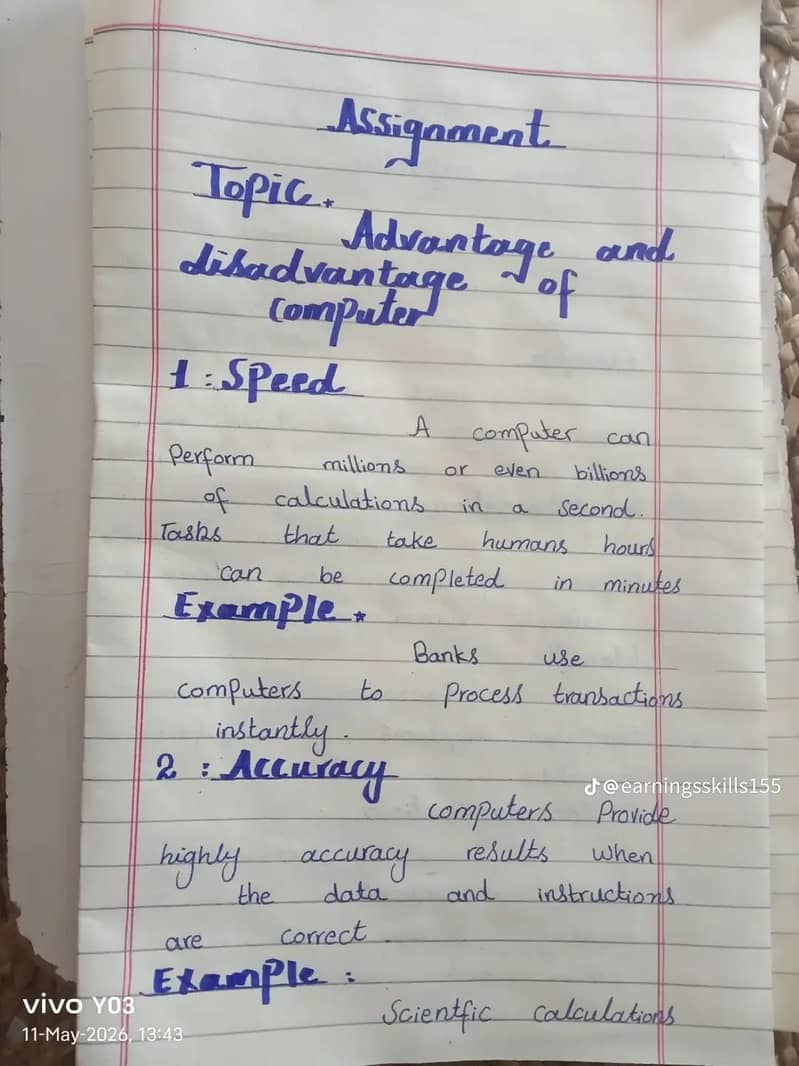 Assignment
Topic.
Advantage and
disadvantage of
computer
1 : Speed
A computer can
Perform millions or even billions
of calculations in a second.
Tasks that take humans hours
can be completed in minutes
Example.
Banks use
computers to process transactions
instantly.
2 : Accuracy
@earningsskills155
computers Provide
highly accuracy results when
the data and instructions
are correct.
Example :
Scientfic calculations
vivo Y03
11-May-2026, 13:43